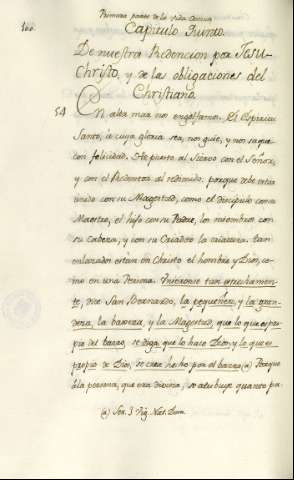 Primera parte de la Vida Común
100.
Capitulo Quinto.
De nuestra Redencion por Jesu-
Christo, y de las obligaciones del
Christiano.
54 En alta mar nos engolfamos. El Espiritu
Santo, à cuya gloria sea, nos guie, y nos saque
con felicidad. De puerto al Siervo con el Señor,
y con el Redentor al redimido: porque debe estar
unido con su Magestad, como el discipulo con su
Maestro, el hijo con su Padre, los miembros con
su Cabeza, y con su Criador la criatura. Tan
enlazados estan en Christo el hombre y Dios, co-
mo en una Persona. Unieronse tan estrechamen-
te, dice San Bernardo, la pequeñez, y la gran-
deza, la bajeza, y la Magestad, que lo que es pro-
pio del barro, se diga, que lo hace Dios, y lo que es
propio de Dios, se crea hecho por el barro (a) Porque
à la persona, que era divina, se atribuye quanto pa-
(a) Ser. 3 Vig. Nat. Dom.